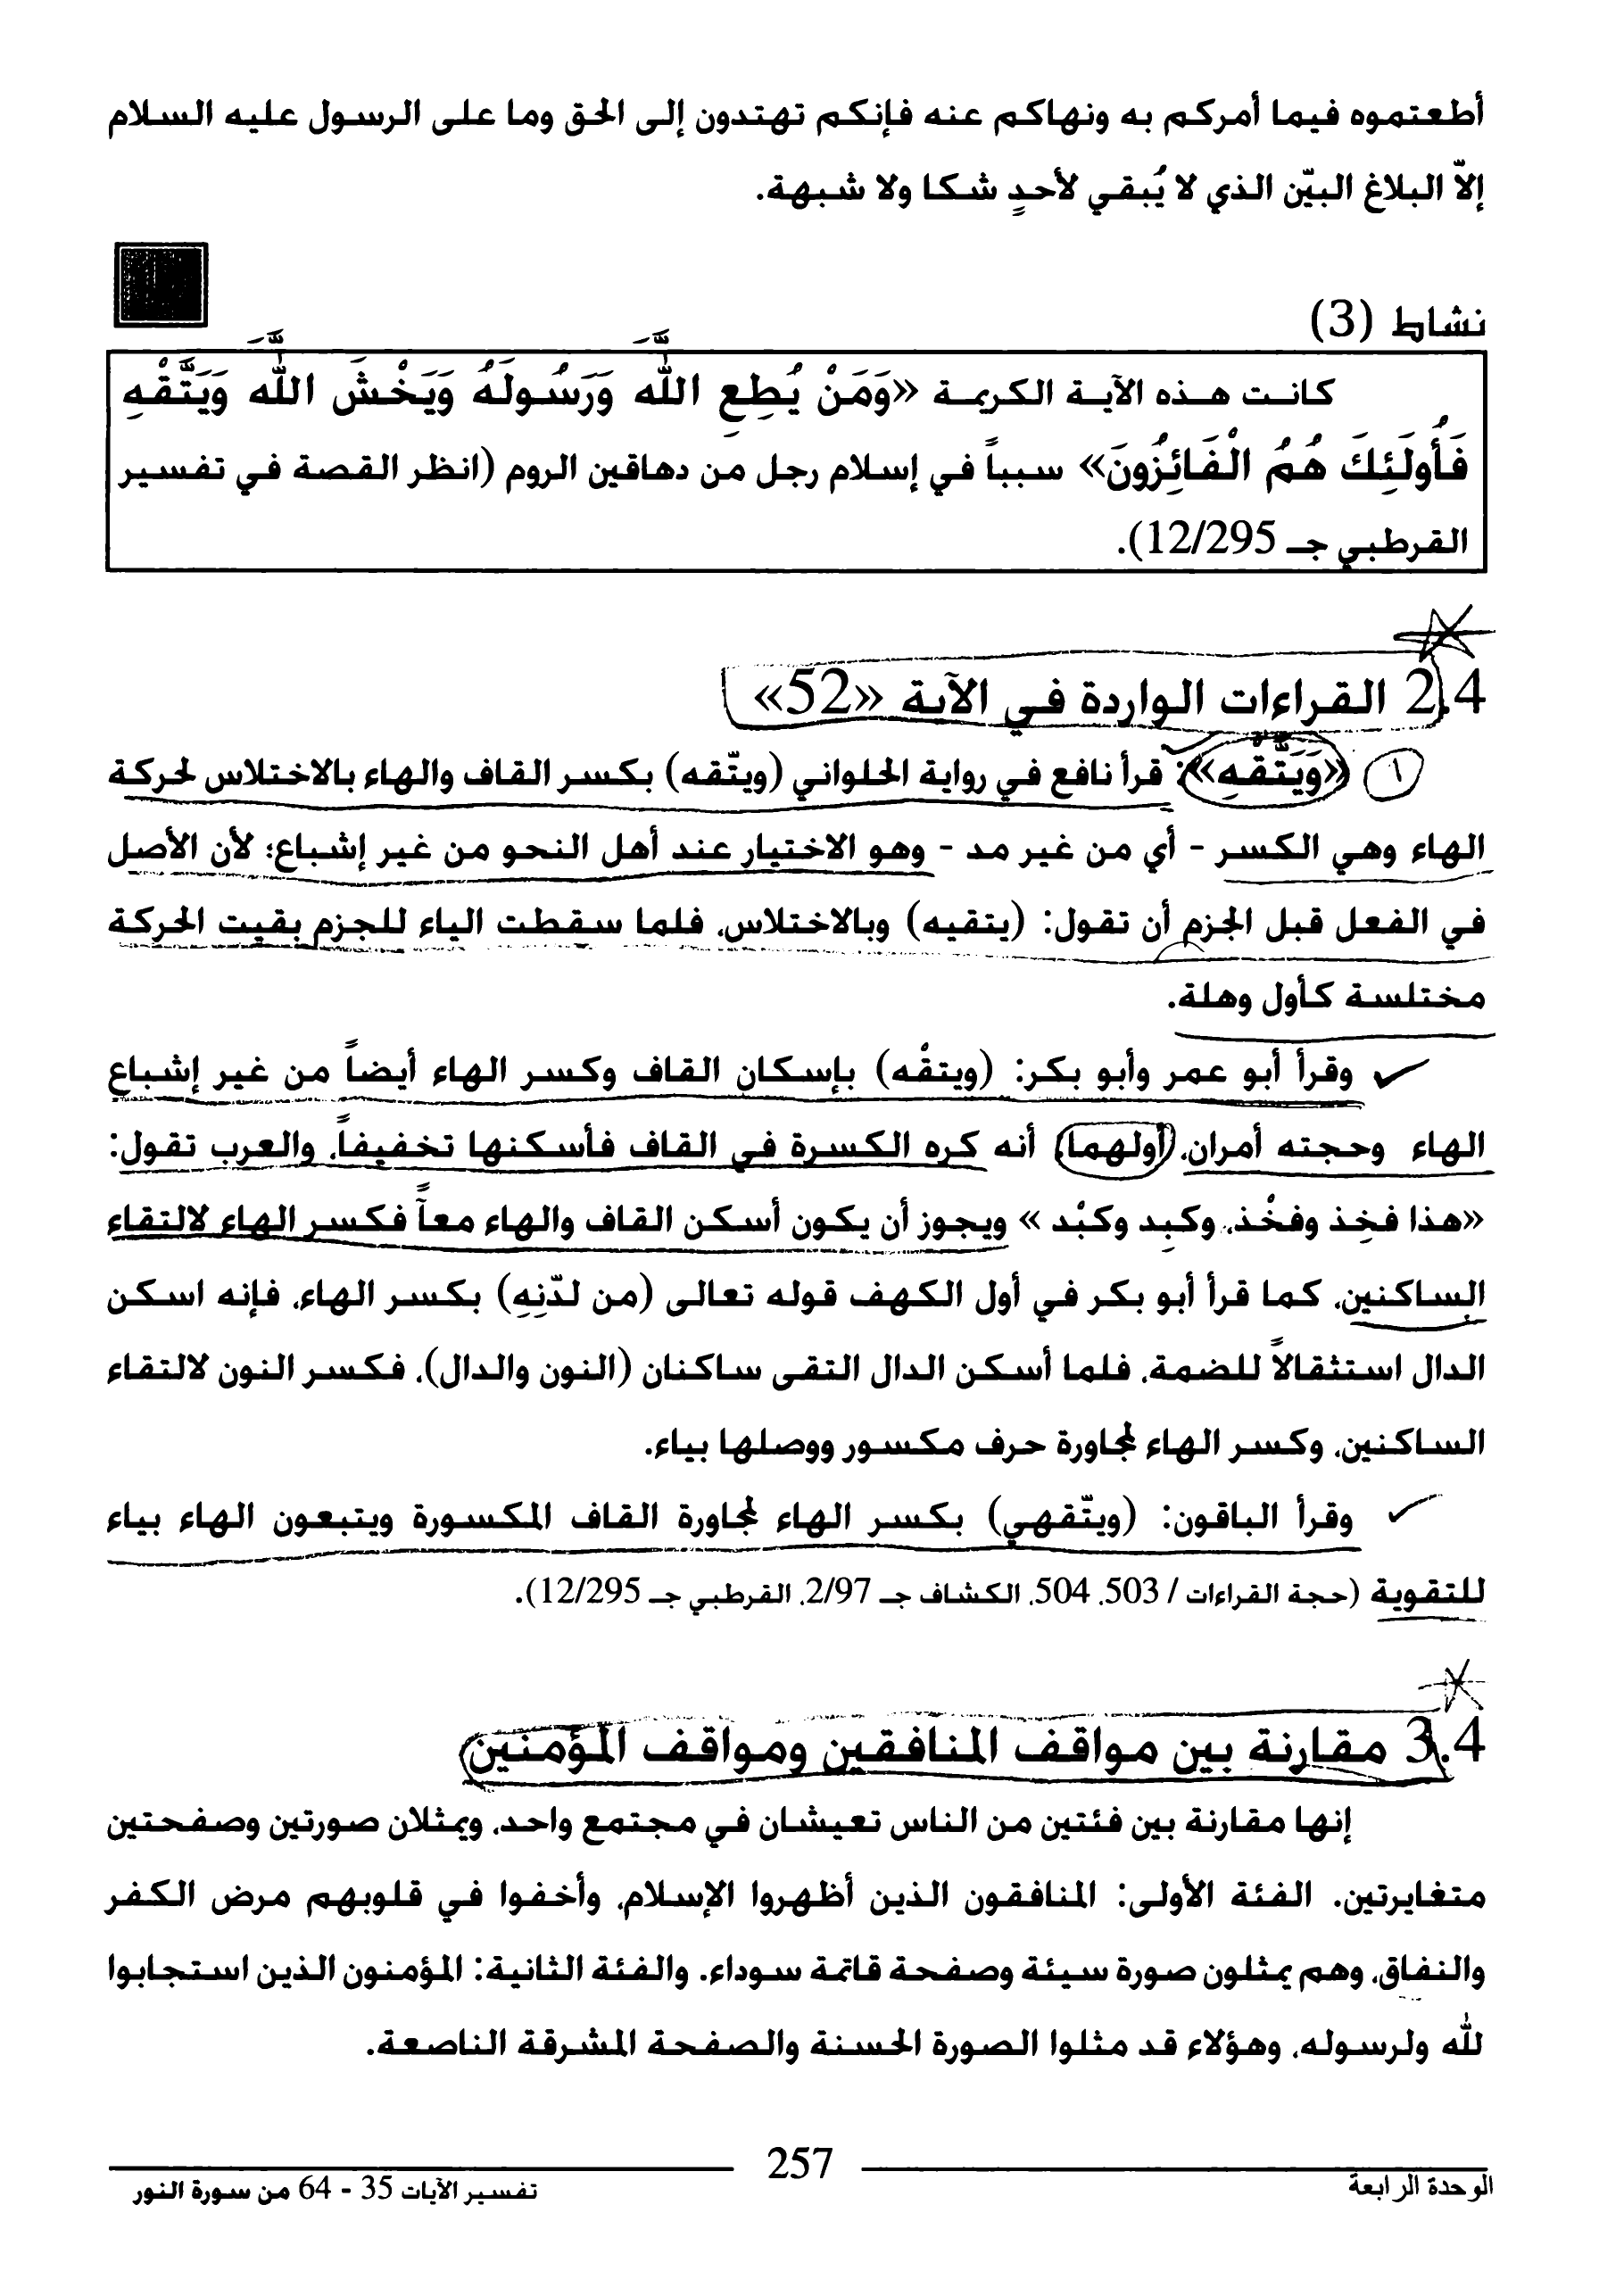 أطعتموه فيما أمركم به ونهاكم عنه فإنكم تهتدون إلى الحق وما على الرسول عليه السلام
إلاّ البلاغ البيّن الذي لا يُبقي لأحدٍ شكا ولا شبهة.
نشاط (3)
كانت هذه الآية الكريمة «وَمَنْ يُطِعِ اللَّهَ وَرَسُولَهُ وَيَخْشَ اللَّهَ وَيَتَّقْهِ
فَأُولَئِكَ هُمُ الْفَائِزُونَ» سبباً في إسلام رجل من دهاقين الروم (انظر القصة في تفسير
القرطبي جـ 12/295).
2.4 القراءات الواردة في الآية «52»
١ «وَيَتَّقْهِ»: قرأ نافع في رواية الحلواني (ويتّقه) بكسر القاف والهاء بالاختلاس لحركة
الهاء وهي الكسر - أي من غير مد - وهو الاختيار عند أهل النحو من غير إشباع؛ لأن الأصل
في الفعل قبل الجزم أن تقول: (يتقيه) وبالاختلاس، فلما سقطت الياء للجزم بقيت الحركة
مختلسة كأول وهلة.
وقرأ أبو عمر وأبو بكر: (ويتقْه) بإسكان القاف وكسر الهاء أيضاً من غير إشباع
الهاء وحجته أمران، (أولهما) أنه كره الكسرة في القاف فأسكنها تخفيفاً، والعرب تقول:
«هذا فخِذ وفخْذ، وكبِد وكبْد » ويجوز أن يكون أسكن القاف والهاء معاً فكسر الهاء لالتقاء
الساكنين، كما قرأ أبو بكر في أول الكهف قوله تعالى (من لدّنِهِ) بكسر الهاء، فإنه اسكن
الدال استثقالاً للضمة، فلما أسكن الدال التقى ساكنان (النون والدال)، فكسر النون لالتقاء
الساكنين، وكسر الهاء لمجاورة حرف مكسور ووصلها بياء.
وقرأ الباقون: (ويتّقهي) بكسر الهاء لمجاورة القاف المكسورة ويتبعون الهاء بياء
للتقوية (حجة القراءات / 503، 504، الكشاف جـ 2/97، القرطبي جـ 12/295).
3.4 مقارنة بين مواقف المنافقين ومواقف المؤمنين
إنها مقارنة بين فئتين من الناس تعيشان في مجتمع واحد، ويمثلان صورتين وصفحتين
متغايرتين. الفئة الأولى: المنافقون الذين أظهروا الإسلام، وأخفوا في قلوبهم مرض الكفر
والنفاق، وهم يمثلون صورة سيئة وصفحة قاتمة سوداء. والفئة الثانية: المؤمنون الذين استجابوا
لله ولرسوله، وهؤلاء قد مثلوا الصورة الحسنة والصفحة المشرقة الناصعة.
257
الوحدة الرابعة
تفسير الآيات 35 - 64 من سورة النور